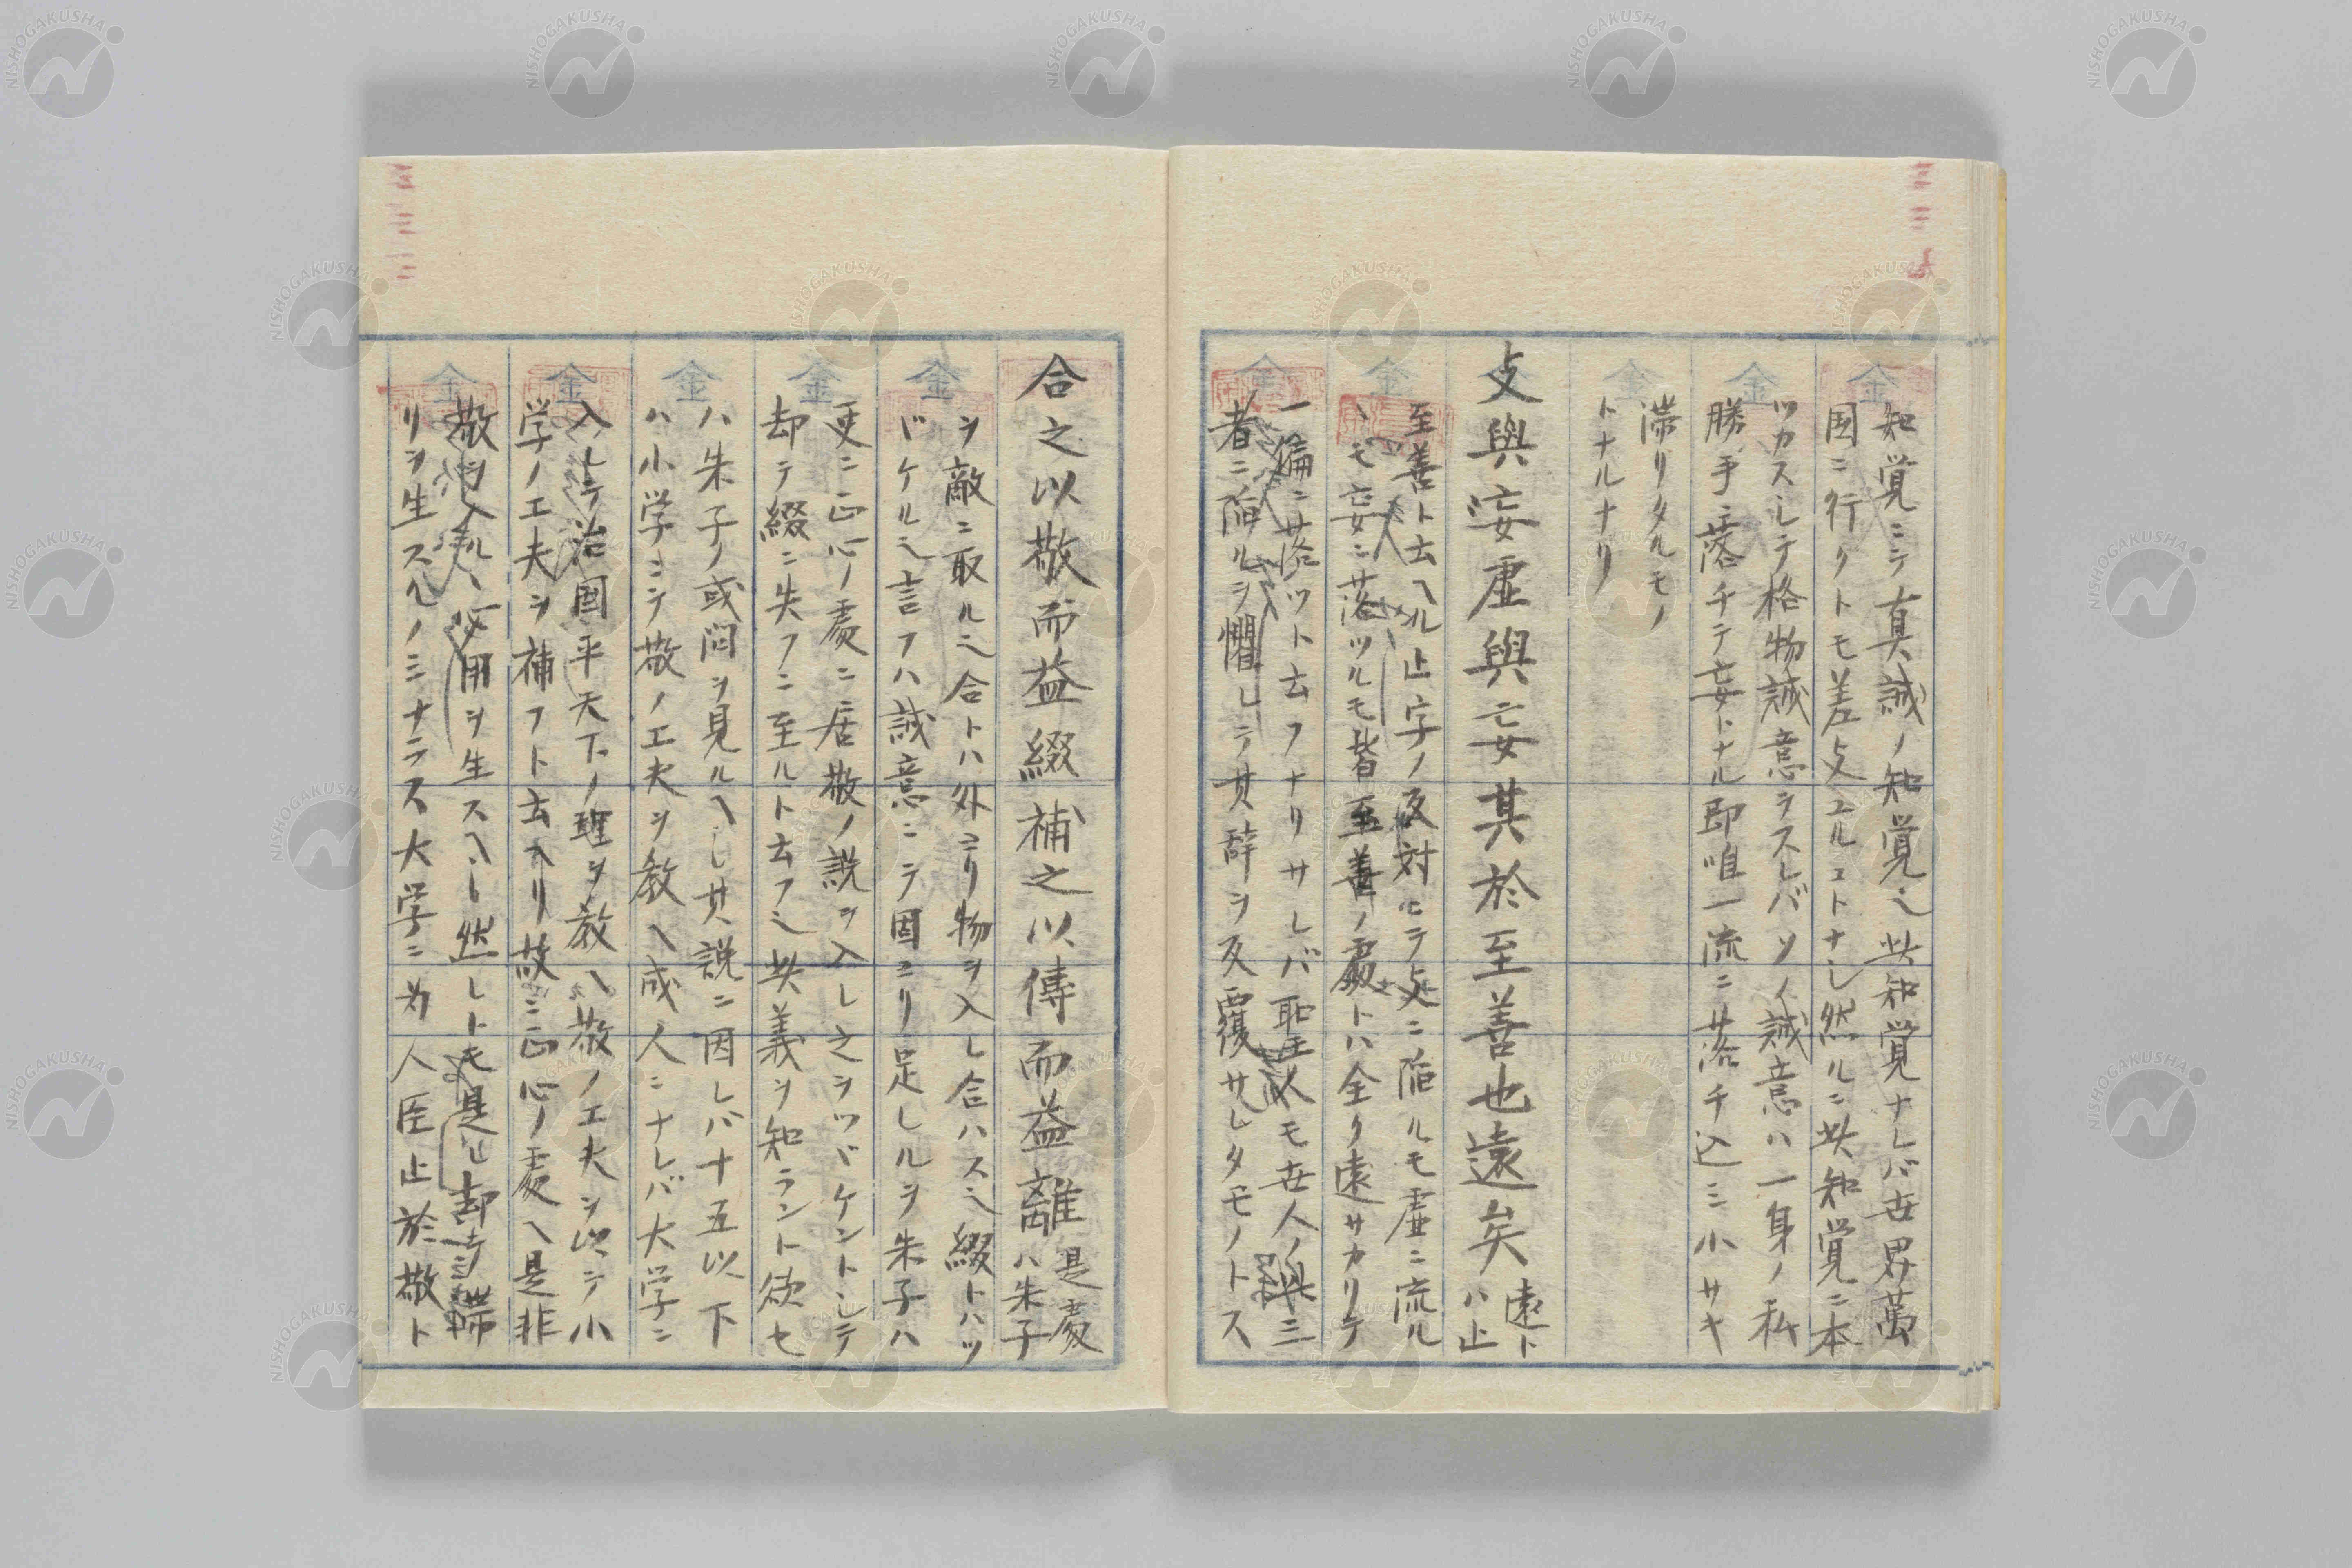 知覚ニテ真誠ノ知覚也此知覚ナレバ世界萬
国ニ行クトモ差支ユルコトナし然ルニ此知覚ニ本
ツカスしテ格物誠意ヲスレバソノ誠意ハ一身ノ私
勝手ニ落チテ妄トナル即唯一流ニ落チ込ミ小サキ
滞リタルモノ
トナルナリ
支與妄虚與妄其於至善也遠矣
遠ト
ハ止
至善ト云ヘル止字ノ反対ニテ支ニ陥ルモ虚ニ流ル
丶モ妄ニ落ツルモ皆至善ノ處トハ全ク遠サカリテ
一偏ニ落ツト云フナリサレバ聖人モ世人ノ三
者ニ陥ルヲ懼レテ其辞ヲ反覆サレタモノトス
合之以敬而益綴補之以傳而益離
是處
ハ朱子
ヲ敵ニ取ル也合トハ外ヨリ物ヲ入レ合ハス也綴トハツ
ゞケル也言フハ誠意ニテ固ヨリ足レルヲ朱子ハ
更ニ正心ノ處ニ居敬ノ説ヲ入レ之ヲツゞケントしテ
却テ綴ニ失フニ至ルト云フ也此義ヲ知ラント欲セ
ハ朱子ノ或問ヲ見ルヘし其説ニ因レバ十五以下
ハ小学ニテ敬ノ工夫ヲ教ヘ成人ニナレバ大学ニ
入レテ治国平天下ノ理ヲ教ヘ敬ノ工夫ヲ以テ小
学ノ工夫ヲ補フト云ヘリ故ニ正心ノ處ヘ是非
敬ヲ入ル丶必用ヲ生スヘし然レトモ是レ却テ滞
リヲ生スルノミナラス大学ニ為人臣止於敬ト